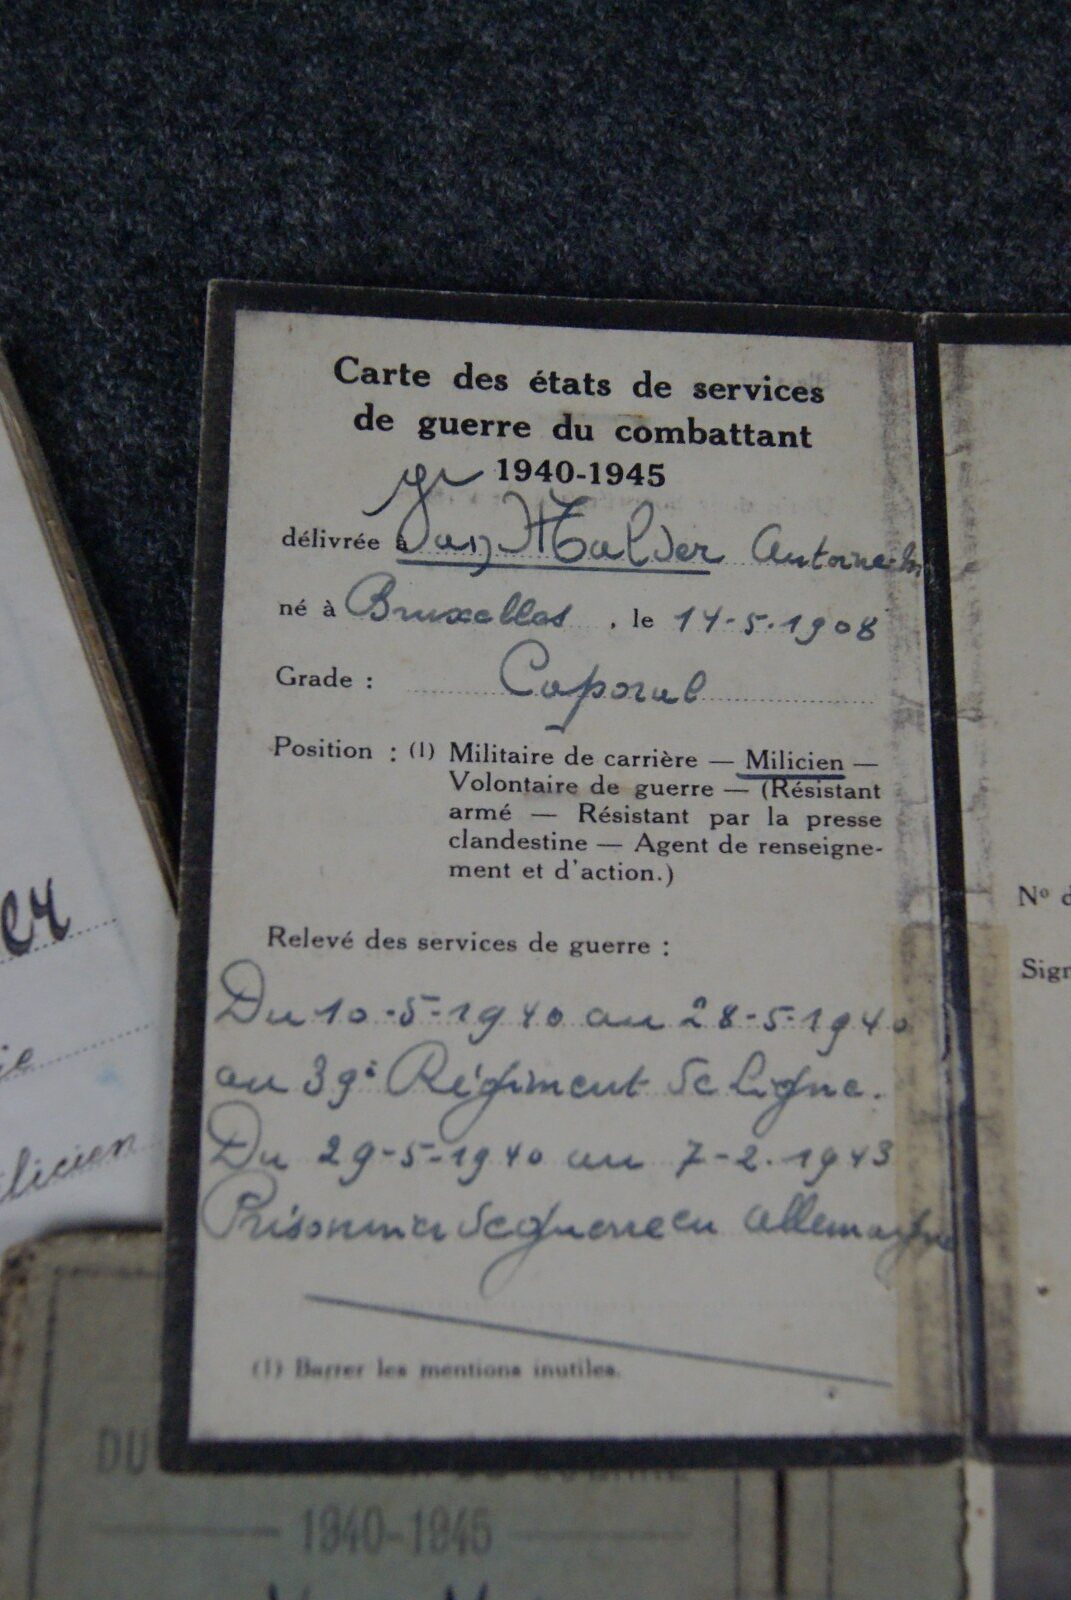 Carte des états de services
de guerre du combattant
1940-1945
délivrée à Van Malder Antoine
né à Bruxelles , le 14-5-1908
Grade : Caporal
Position : (1) Militaire de carrière — Milicien —
Volontaire de guerre — (Résistant
armé — Résistant par la presse
clandestine — Agent de renseigne-
ment et d'action.)
Relevé des services de guerre :
Du 10-5-1940 au 28-5-1940
au 39e Régiment de Ligne.
Du 29-5-1940 au 7-2-1943
Prisonnier de guerre en Allemagne
(1) Barrer les mentions inutiles.
N° d
Sign
er
ie
licien
DU
1940-1945